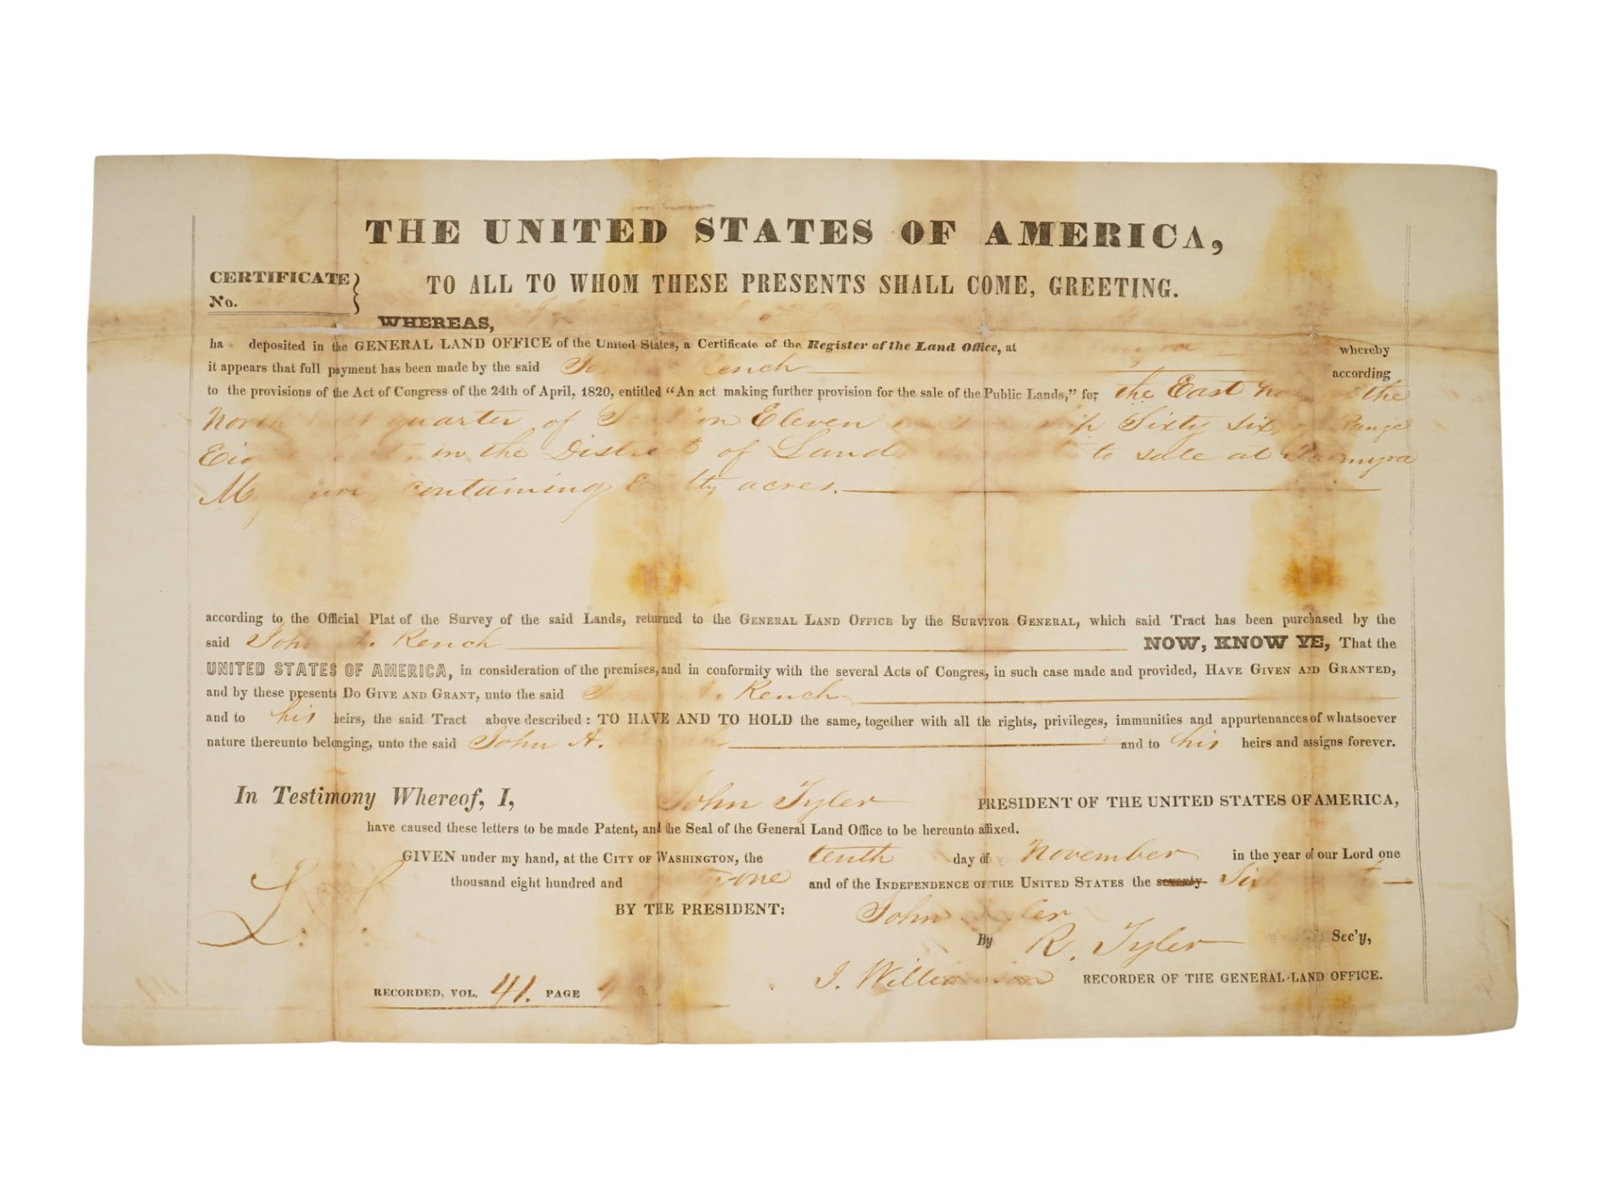 THE UNITED STATES OF AMERICA,
CERTIFICATE
No.
TO ALL TO WHOM THESE PRESENTS SHALL COME, GREETING.
WHEREAS,
ha deposited in the GENERAL LAND OFFICE of the United States, a Certificate of the Register of the Land Office, at whereby
it appears that full payment has been made by the said Rench according
to the provisions of the Act of Congress of the 24th of April, 1820, entitled "An act making further provision for the sale of the Public Lands," for the East the
quarter of Eleven Sixty six Range
in the District of Lands to sale at Palmyra
containing acres.
according to the Official Plat of the Survey of the said Lands, returned to the GENERAL LAND OFFICE by the SURVEYOR GENERAL, which said Tract has been purchased by the
said John Rench NOW, KNOW YE, That the
UNITED STATES OF AMERICA, in consideration of the premises, and in conformity with the several Acts of Congres, in such case made and provided, HAVE GIVEN AND GRANTED,
and by these presents DO GIVE AND GRANT, unto the said Rench
and to his heirs, the said Tract above described: TO HAVE AND TO HOLD the same, together with all the rights, privileges, immunities and appurtenances of whatsoever
nature thereunto belonging, unto the said John A. and to his heirs and assigns forever.
In Testimony Whereof, I, John Tyler PRESIDENT OF THE UNITED STATES OF AMERICA,
have caused these letters to be made Patent, and the Seal of the General Land Office to be hereunto affixed.
GIVEN under my hand, at the CITY OF WASHINGTON, the tenth day of November in the year of our Lord one
thousand eight hundred and one and of the INDEPENDENCE OF THE UNITED STATES the seventy Six
BY THE PRESIDENT: John Tyler
By R. Tyler Sec'y,
RECORDED, VOL. 41. PAGE
J. Williamson RECORDER OF THE GENERAL LAND OFFICE.